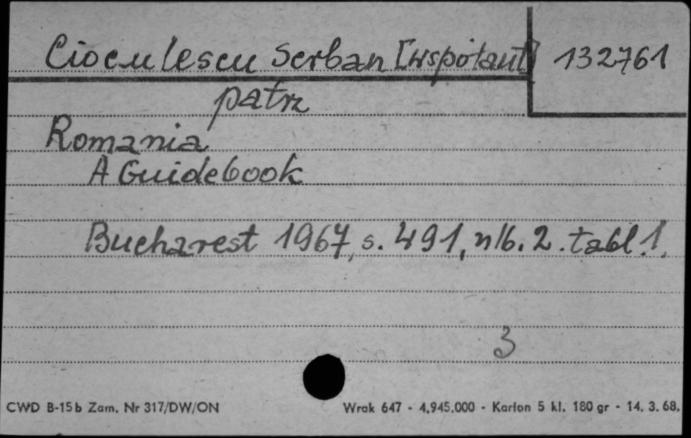 Cioculescu Serban [wspołaut] 132761
patrz
Romania
A Guidebook
Bucharest 1967, s. 491, nlb. 2. tabl. 1.
3
CWD B-15b Zam. Nr 317/DW/ON Wrak 647 - 4.945.000 - Karton 5 kl. 180 gr - 14. 3. 68.